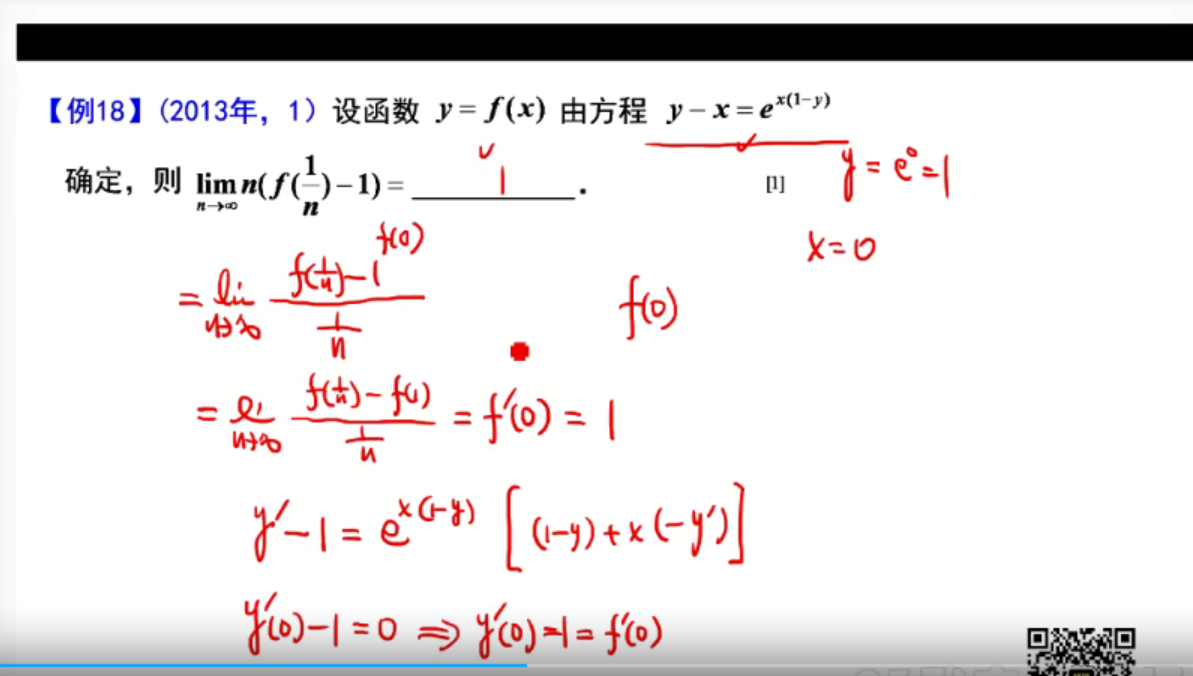 【例18】(2013年, 1) 设函数 y = f(x) 由方程 y − x = e^{x(1−y)}
确定, 则 lim_{n→∞} n(f(1/n) − 1) = 1 .
[1]
y = e^0 = 1
x = 0
f(0)
= lim_{n→∞} (f(1/n) − 1)/(1/n)
f(0)
= lim_{n→∞} (f(1/n) − f(0))/(1/n) = f′(0) = 1
y′ − 1 = e^{x(1−y)} [(1−y) + x(−y′)]
y′(0) − 1 = 0 ⇒ y′(0) = 1 = f′(0)